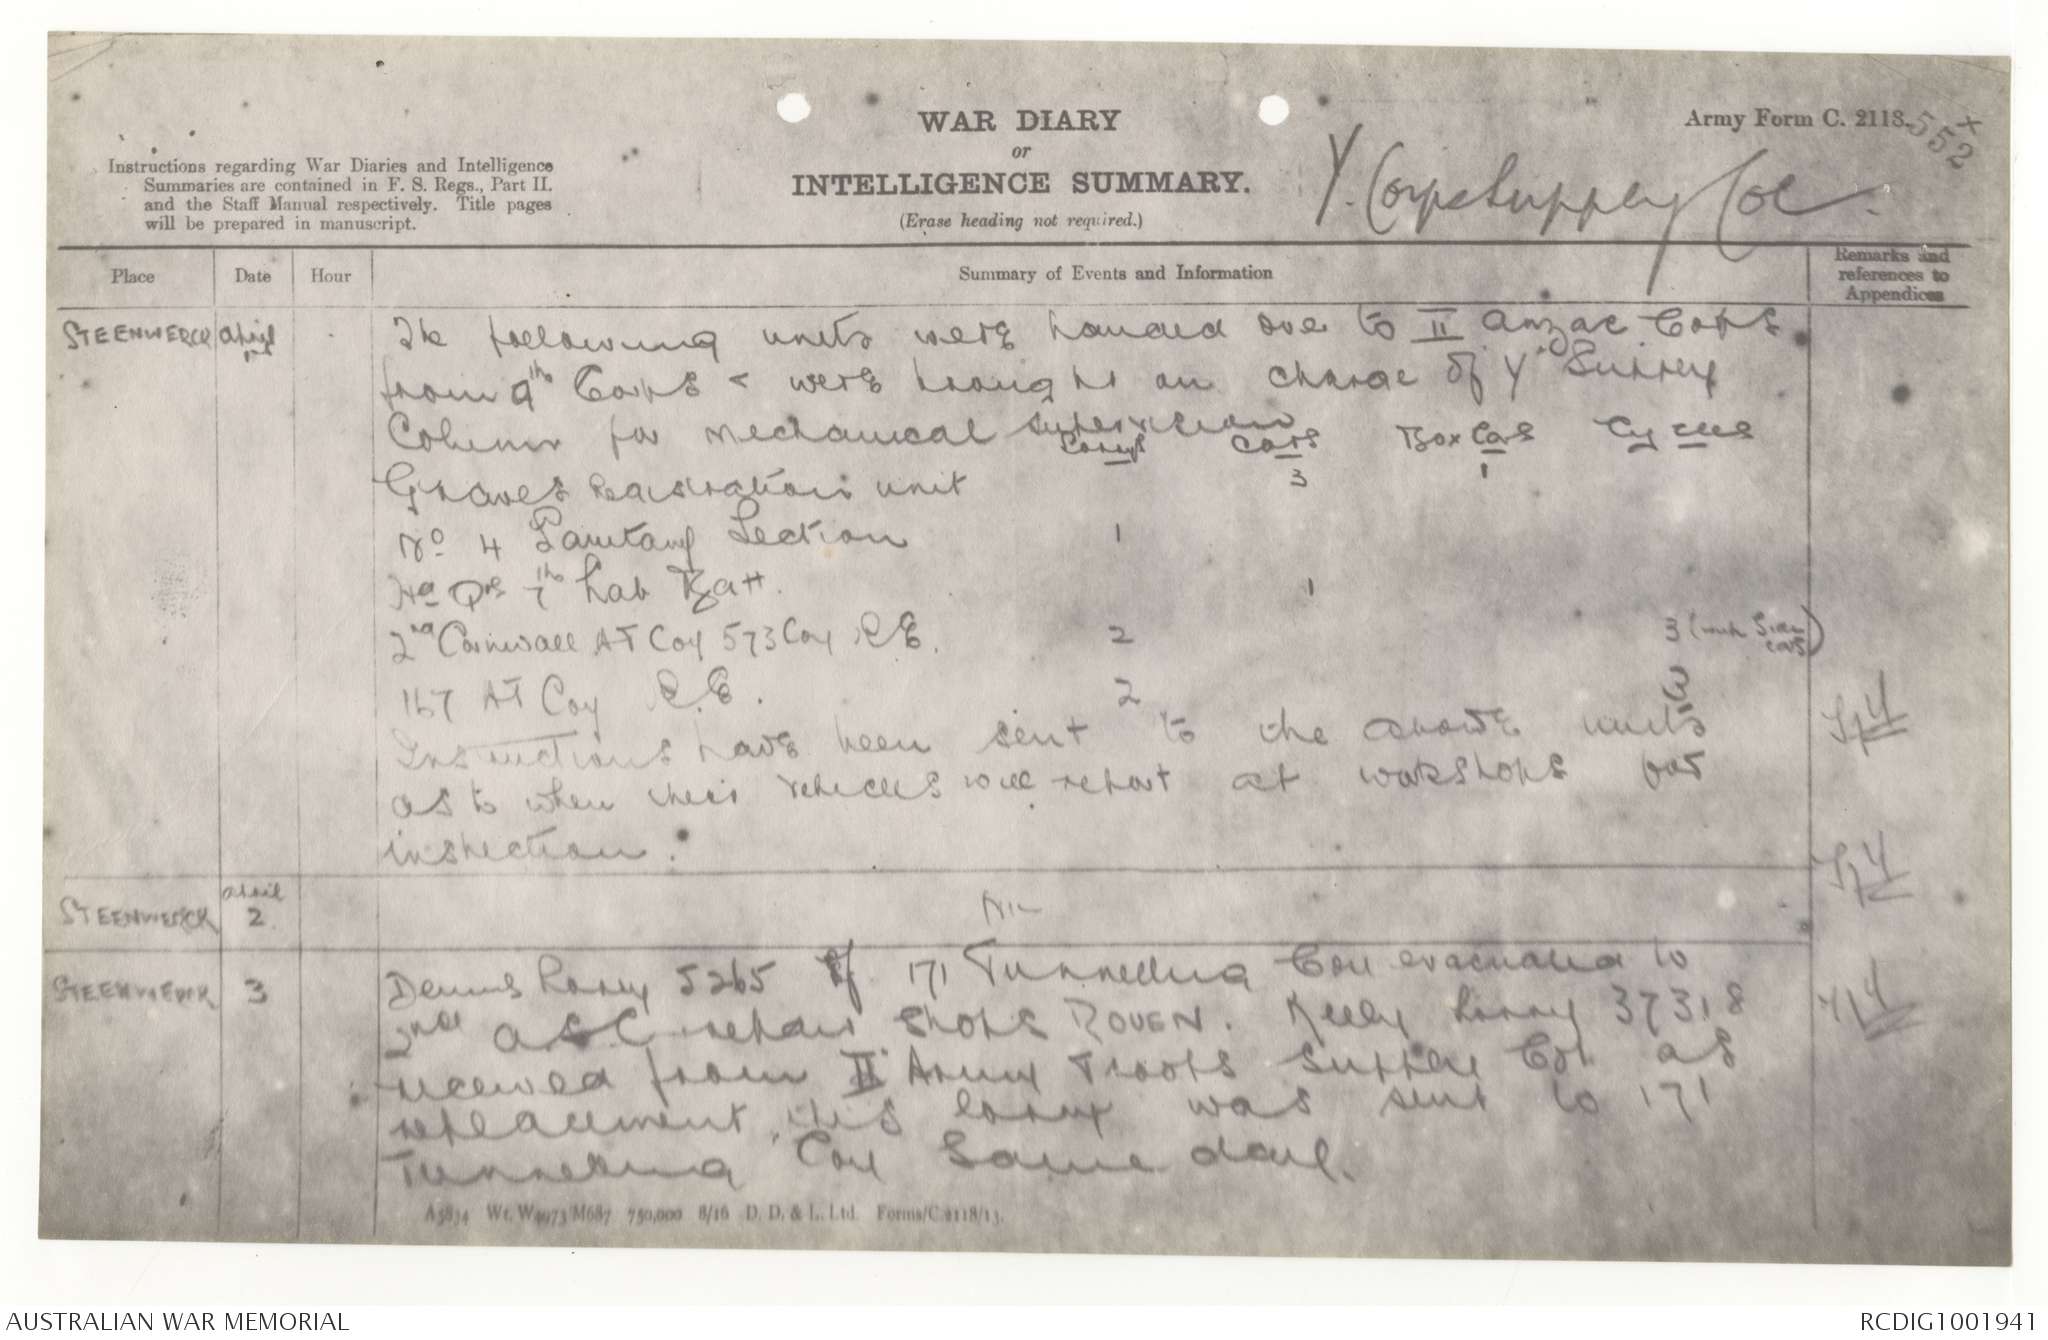 WAR DIARY
or
INTELLIGENCE SUMMARY.
(Erase heading not required.)
Army Form C. 2118.
552
Y. Corps Supply Col.
Instructions regarding War Diaries and Intelligence
Summaries are contained in F. S. Regs., Part II.
and the Staff Manual respectively. Title pages
will be prepared in manuscript.
Place Date Hour Summary of Events and Information Remarks and references to Appendices
STEENWERCK April The following units were handed over to II Anzac Corps
from 9th Corps & were brought on charge of Y Supply
Column for mechanical supervision
Lorrys Cars Box Cars Cycles
Graves Registration unit 3 1
No 4 Sanitary Section 1
Hd Qrs 7th Lab Batt. 1
2nd Cornwall AT Coy 573 Coy R.E. 2 3 (with Side cars)
167 AT Coy R.E. 2 3
Instructions have been sent to the above units
as to when their vehicles will report at workshops for
inspection.
STEENWERCK April 2 Nil
STEENWERCK 3 Dennis Lorry 5265 of 171 Tunnelling Coy evacuated to
2nd ASC repair shops ROUEN. Kelly Lorry 37318
received from II Army Troops Supply Col as
replacement, this lorry was sent to 171
Tunnelling Coy same day.
A5834 Wt. W4973/M687 750,000 8/16 D. D. & L. Ltd. Forms/C.2118/13.
AUSTRALIAN WAR MEMORIAL
RCDIG1001941